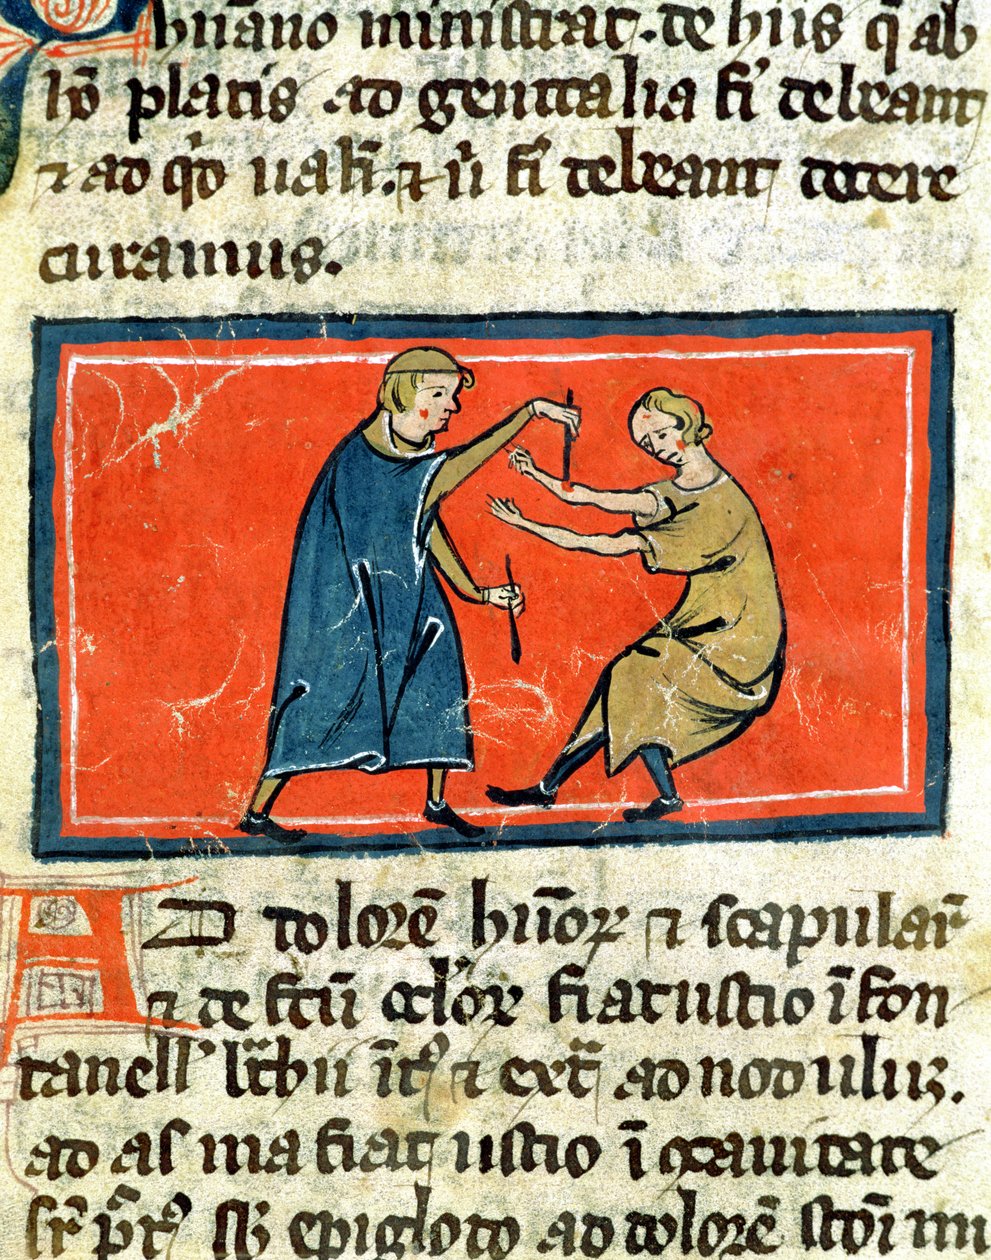 huāno ministrat. de hiis q̄ ab
h̄o platis ad genitalia fi' debeant
⁊ ad qd̓ ualn̄t. ⁊ ū fi' debeant docere
curamus.
AD dolorē hūorꝝ ⁊ scapulaꝝ
⁊ de sctū oclorꝝ fiat ustio ī fon
tanell' ⁊ ext̄ ad nodulū.
ad asma fiat ustio ī ꝯcauitate
sub epigloto ad dolorē